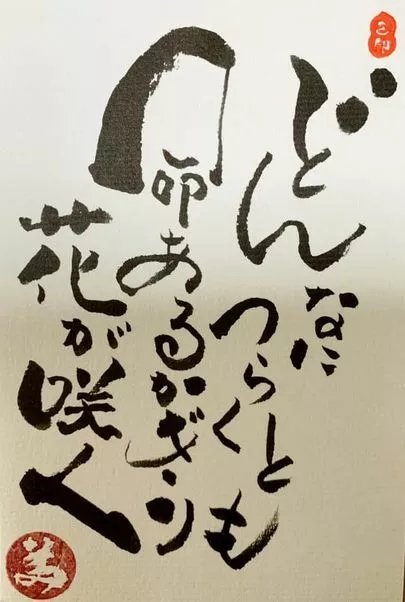 どんなに
つらくとも
命あるかぎり
花が咲く